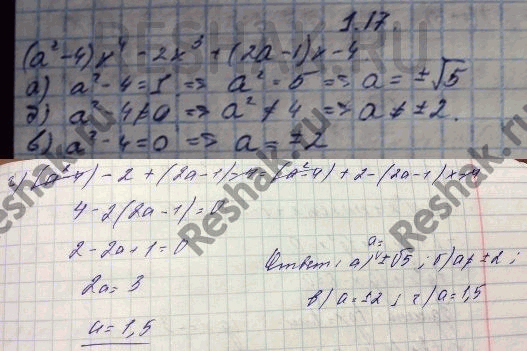 1.17.
(a²-4)x⁴-2x³+(2a-1)x-4
а) a²-4=1 => a²=5 => a=±√5
б) a²-4≠0 => a²≠4 => a≠±2.
в) a²-4=0 => a=±2
г) (a²-4)-2+(2a-1)-4=(a²-4)+2-(2a-1)-4
4-2(2a-1)=0
2-2a+1=0
2a=3
a=1,5
Ответ: а) a=±√5; б) a≠±2;
в) a=±2; г) a=1,5
Reshak.ru